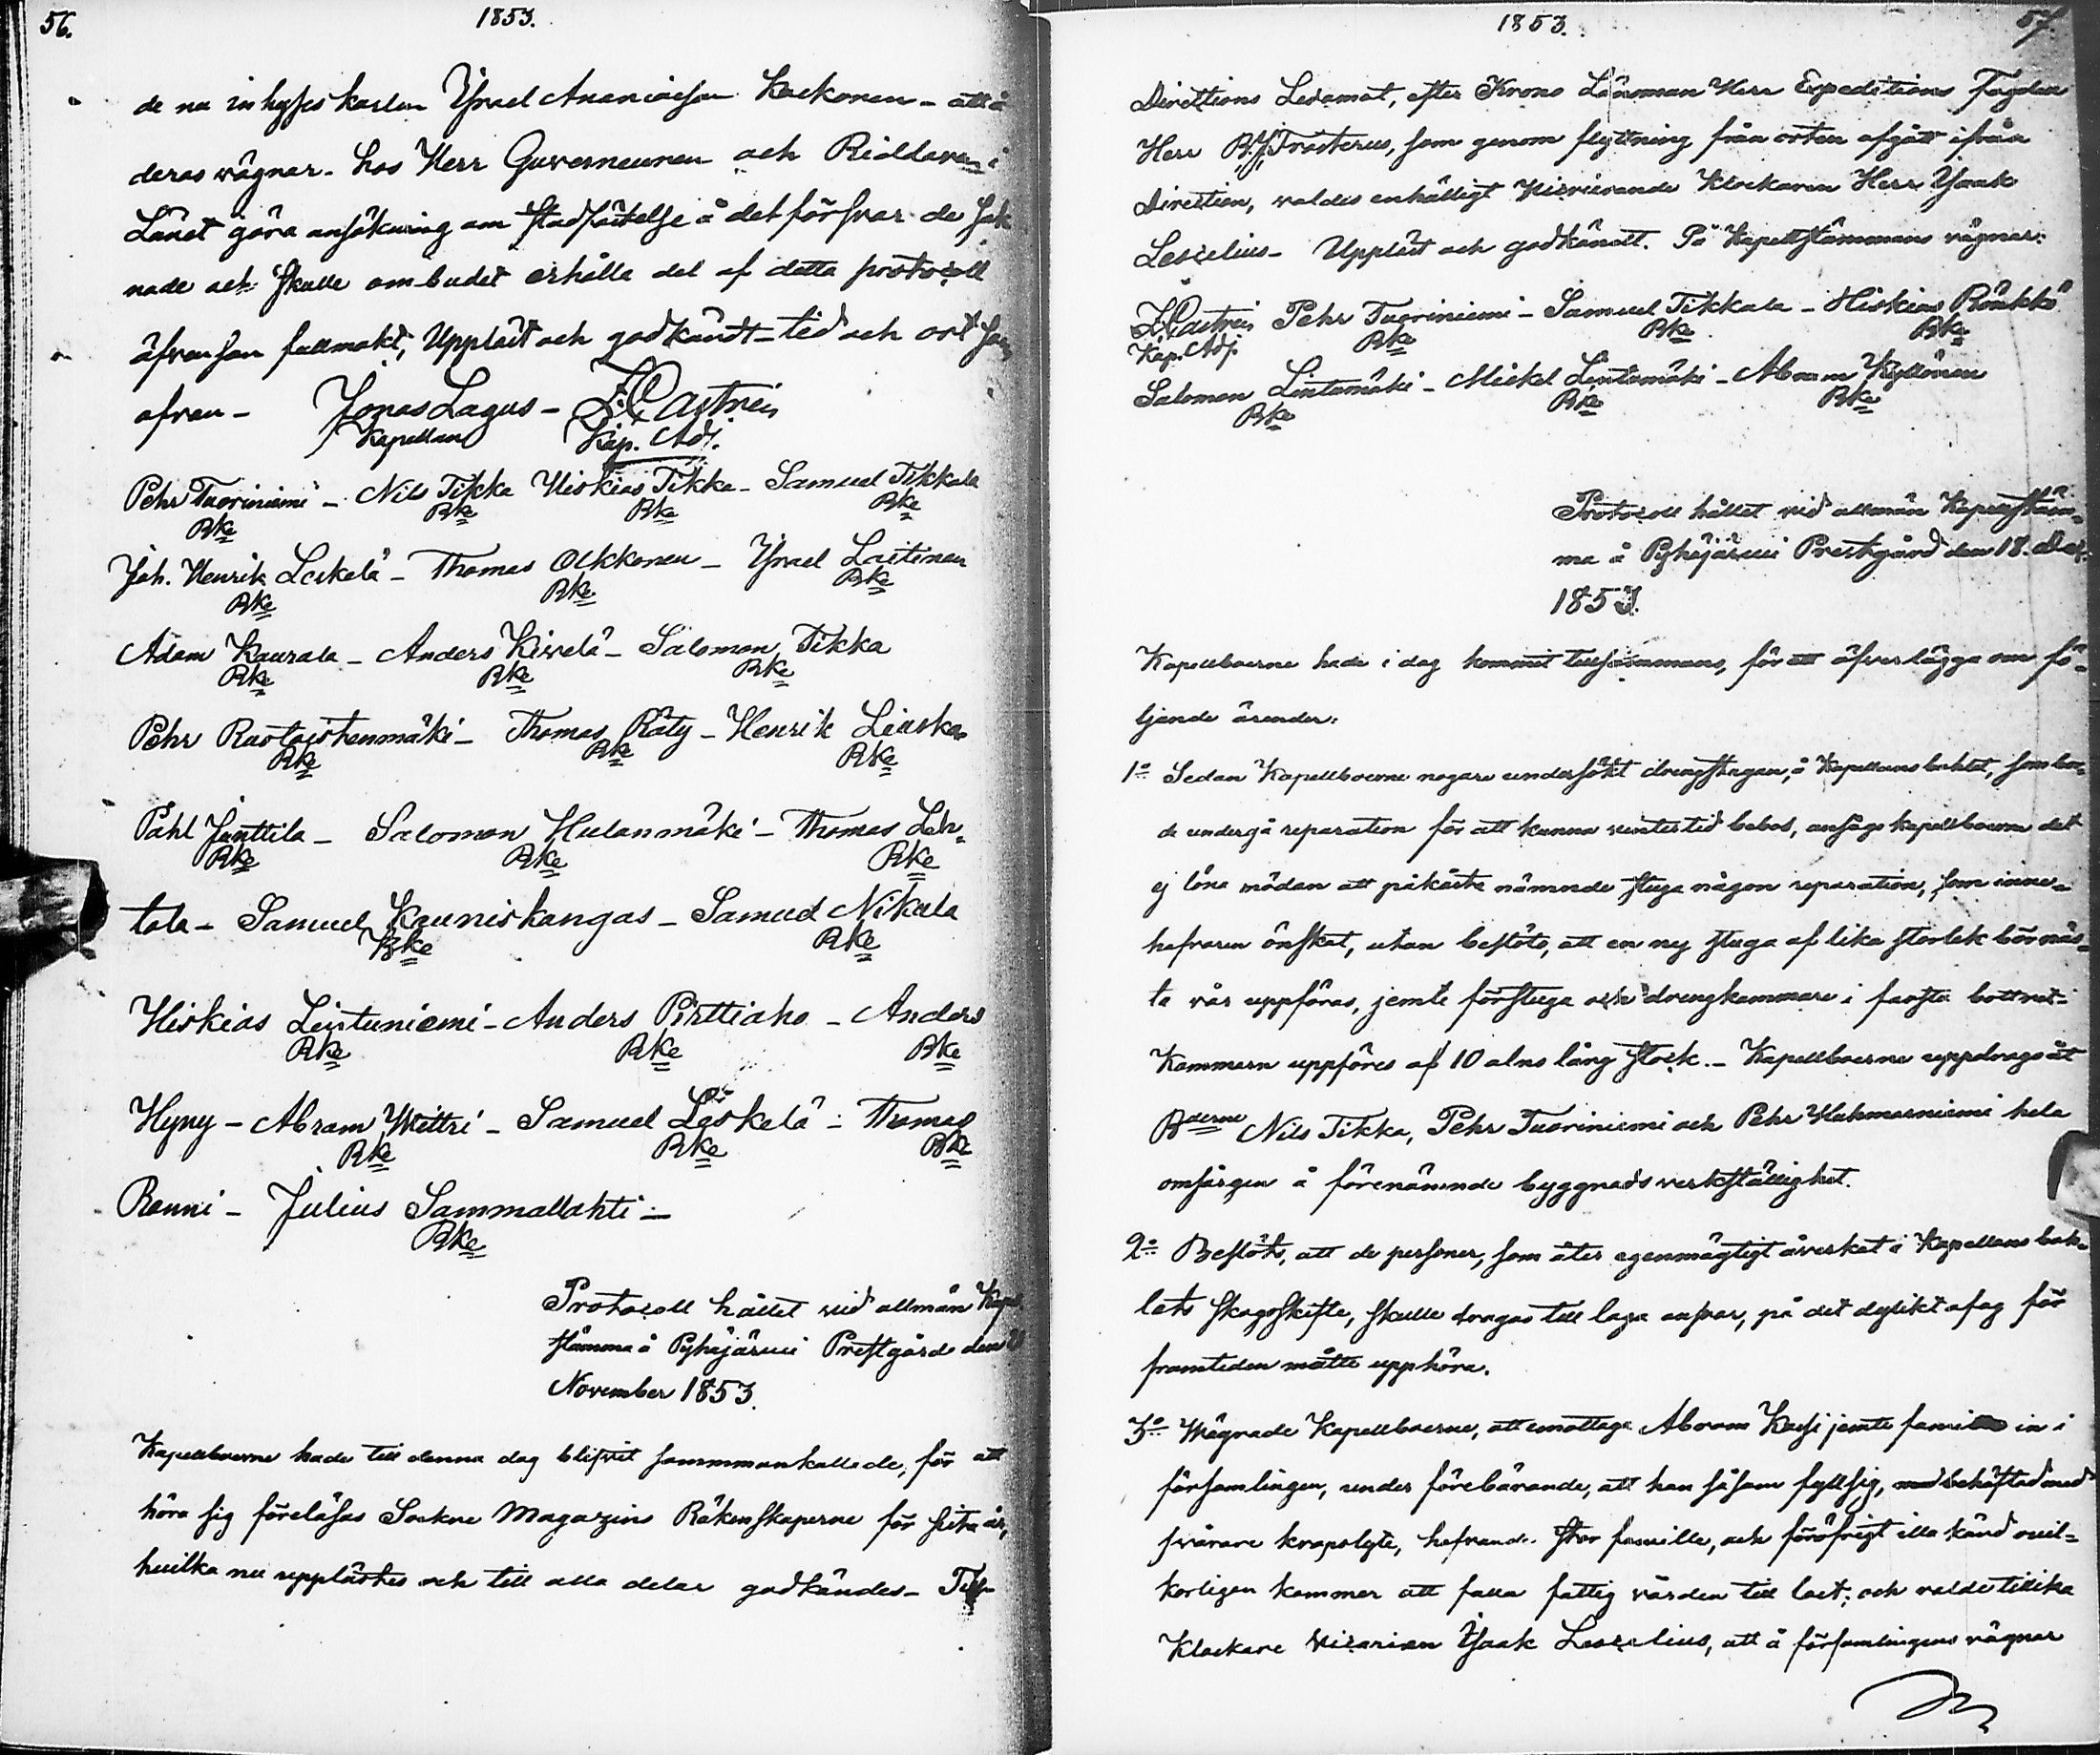 56.
1853.
de nu inhyses karlen Ysrael Ananiaeson Kaekonen - att å
deras vägnar hos Herr Guverneuren och Riddaren i
Länet göra ansökning om stadfästelse å det försvar de sak
nade och skulle ombudet erhålla del af detta protocoll
äfvensom fullmakt, Uppläst och godkändt - tid och ort som
ofvan - Jonas Lagus - Z. Castrén
Kapellan Kap. Adj.
Pehr Tuoriniemi - Nils Tikka Hiskias Tikka - Samuel Tikkala
Bke Bke Bke Bke
Joh. Henrik Leskelä - Thomas Olkkonen - Ysrael Laitinen
Bke Bke Bke
Adam Kaurala - Anders Kiwelä - Salomon Tikka
Bke Bke Bke
Pehr Rastaistenmäki - Thomas Räty - Henrik Liuska
Bke Bke Bke
Påhl Junttila - Salomon Hulanmäki - Thomas Leh-
Bke Bke Bke
tola - Samuel Kauniskangas - Samuel Nikula
Bke Bke
Hiskias Lintuniemi - Anders Pirttiaho - Anders
Bke Bke Bke
Hyny - Abram Wittri - Samuel Leskelä - Thomas
Bke Bke Bke
Ronni - Julius Sammallahti -
Bke
Protocoll hållet vid allmän Kapell
stämma å Pyhäjärvi Prestgård den
November 1853.
Kapellboerne hade till denna dag blifvit sammmankallade, för att
höra sig föreläsas Sockne Magazins Räkenskaperne för sista år,
hvilka nu upplästes och till alla delar godkändes - Till
1853.
57.
Direttions Ledamot, efter Krono Länsman Herr Expeditions Fogden
Herr Frosterus, som genom flyttning från orten afgått ifrån
Direction, valdes enhälligt Vicarierande Klockaren Herr Ysaak
Lescelius - Uppläst och godkändt. På Kapellstämmans vägnar:
Z Castrén Pehr Tuoriniemi - Samuel Tikkala - Hiskias Rönkkö
Kap. Adj. Bke Bke Bke
Salomon Lintomäki - Mickel Lintomäki - Abram Kyllönen
Bke Bke Bke
Protocoll hållet vid allmän Kapellstäm-
ma å Pyhäjärvi Prestgård den 18. Dec.
1853.
Kapellboerne hade i dag kommit tillsammans, för att öfverlägga om föl-
ljande ärender:
1o Sedan Kapellboerne nogare undersökt drengstugan, å Kapellansbohlet, som bor-
de undergå reparation för att kunna vintertid bebos, ansågo kapellboerne det
ej löna mödan att påkosta nämnde stuga någon reparation, som inne-
hafvaren önskat, utan beslöto, att en ny stuga af lika storlek bör näs-
ta vår uppföras, jemte förstuga och drengkammare i farstu bottnet.
Kammarn uppföres af 10 alns lång stock. - Kapellboerne uppdrogo åt
Bderne Nils Tikka, Pehr Tuoriniemi och Pehr Hahmarniemi hela
omsorgen å förenämnde byggnads verkställighet.
2o Beslöts, att de personer, som åter egenmägtigt åverkat i Kapellans bohl-
lets skogsskifte, skulle dragas till laga ansvar, på det dylikt ofog för
framtiden måtte upphöra.
3o Wägrade Kapellboerne, att emottaga Abram Kassi jemte familie in i
församlingen, under förebärande, att han såsom fyllsig, behäftad med
svårare kropslyte, hafvande stor famille, och föröfrigt illa känd ovil-
korligen kommer att falla fattig vården till last; och valde tillika
Klockare Vicarien Ysaak Lescelius, att å församlingens vägnar